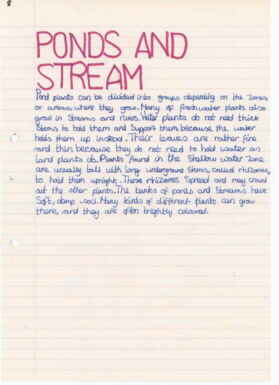 8
PONDS AND
STREAM
Pond plants can be divided into groups depending on the zones
or areas where they grow. Many of freshwater plants also
grow in streams and rivers. Water plants do not need thick
stems to hold them and support them because the water
holds them up instead. Their leaves are rather fine
and thin because they do not need to hold water as
land plants do. Plants found in the shallow water zone
are usually tall with long underground stems, called rhizomes,
to hold them upright. These rhizomes spread and may crowd
out the other plants. The banks of ponds and streams have
soft, damp soil. Many kinds of different plants can grow
there, and they are often brightly coloured.